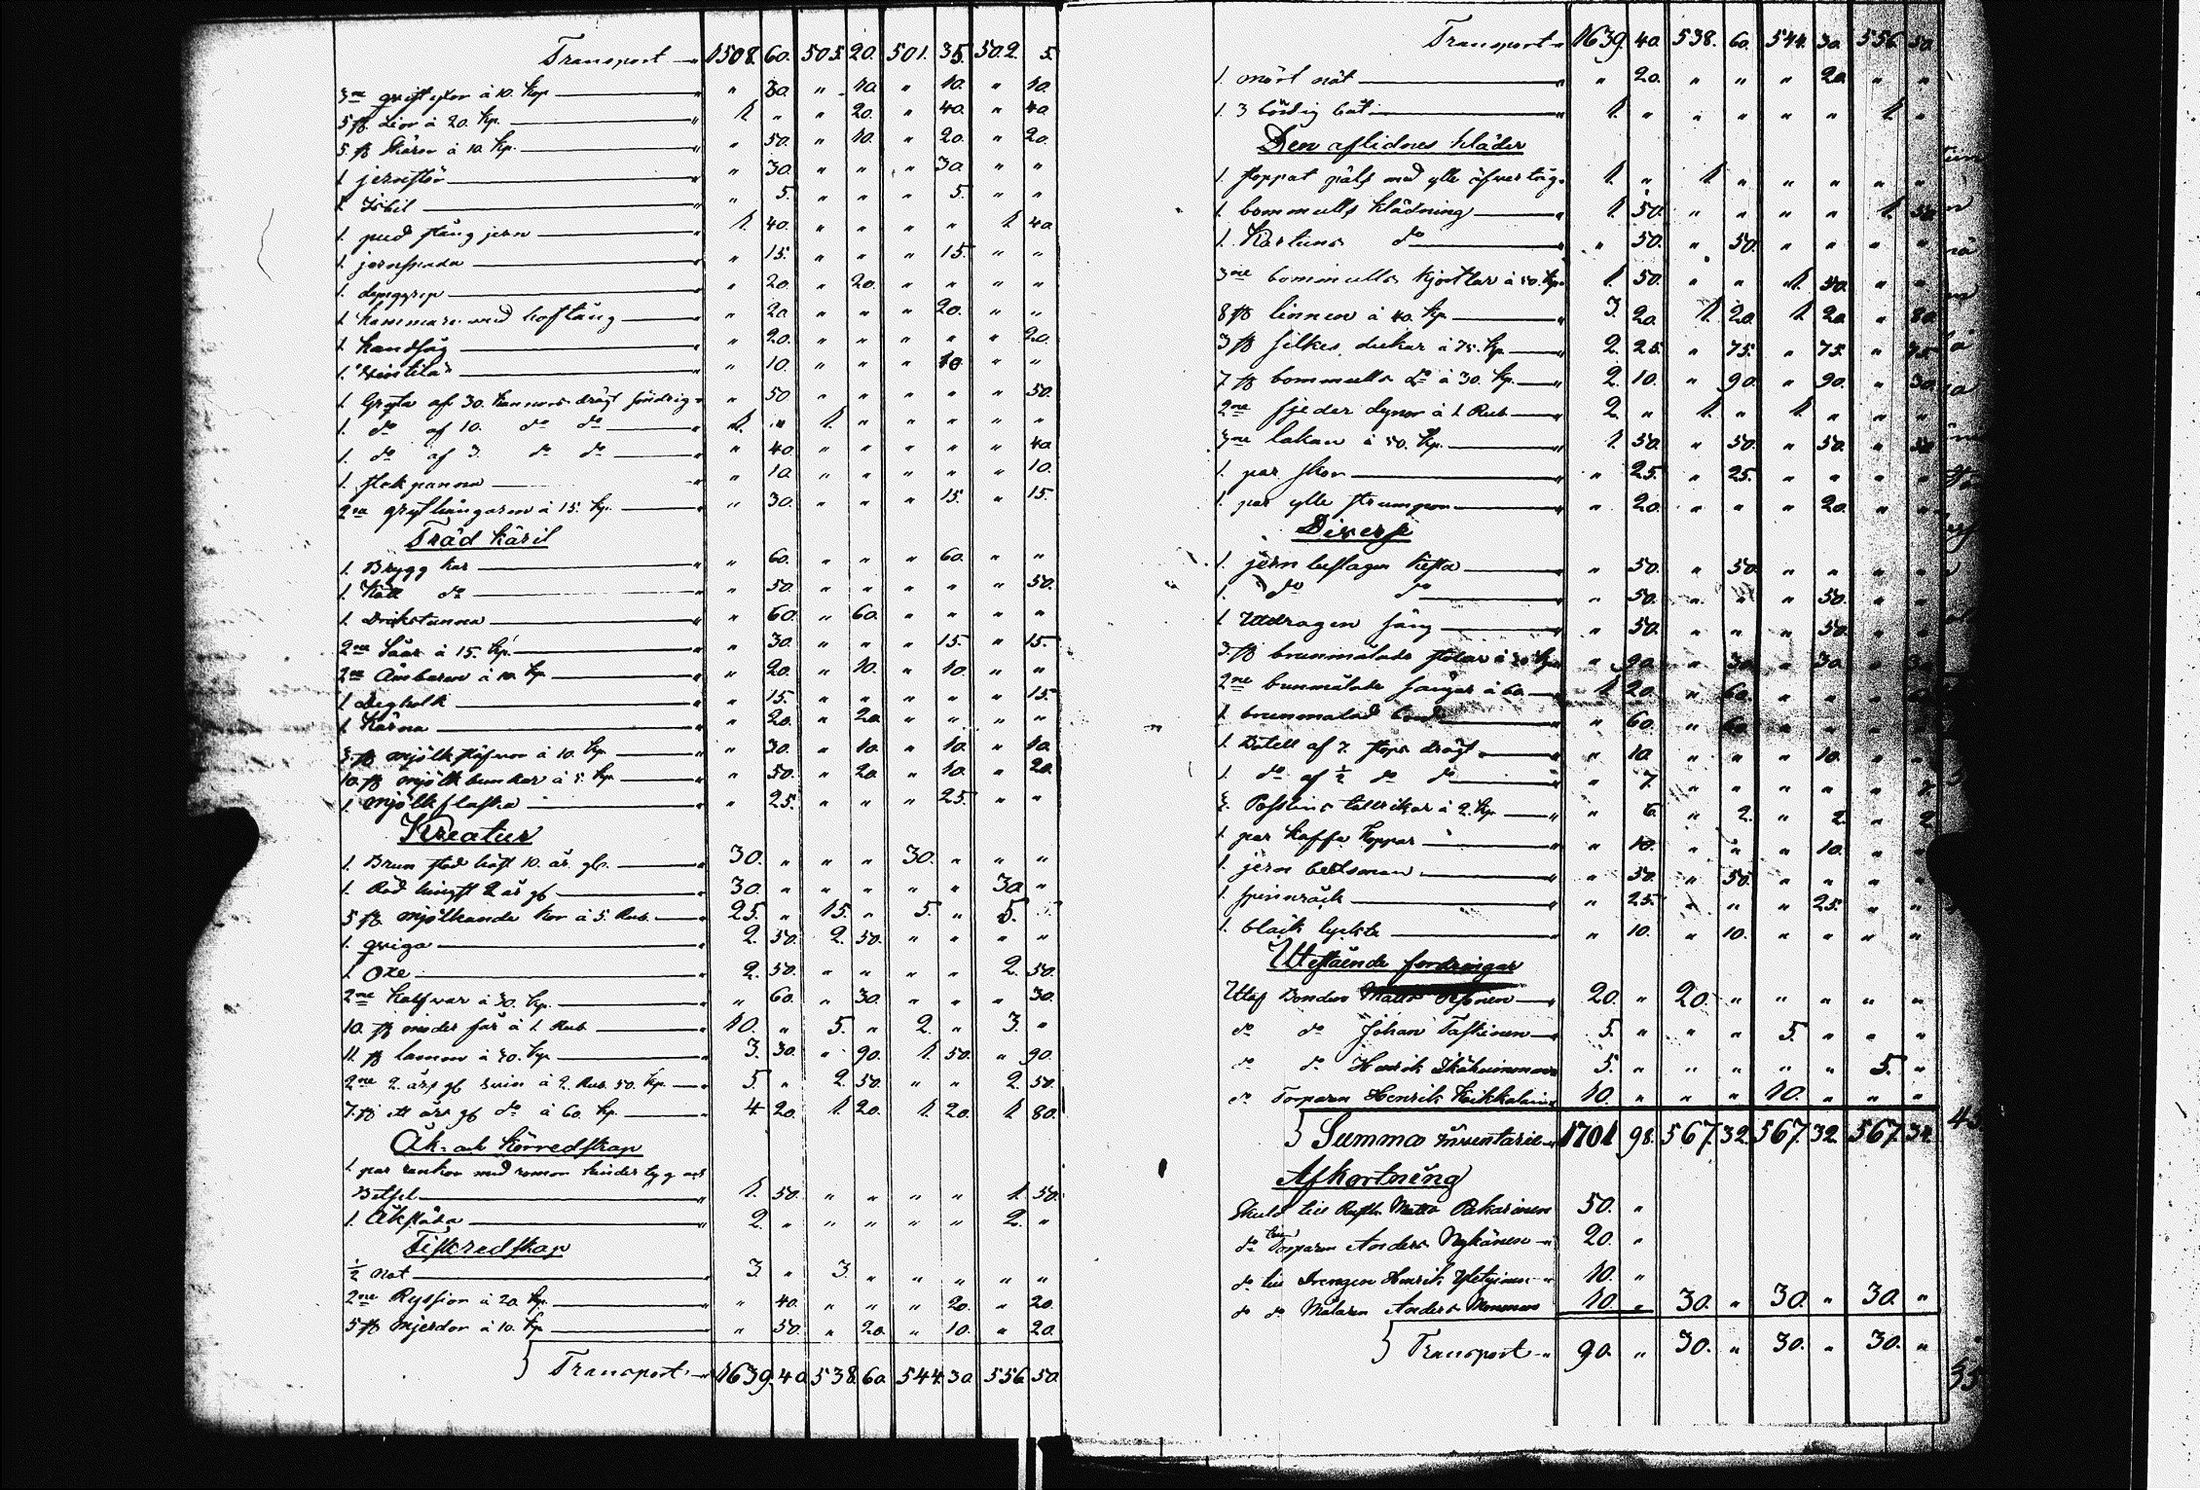 Transport 1508. 60. 505. 20. 501. 35. 502. 5.
3ne à 10. Kop " 30. " 10. " 10. " 10.
5 st Lior à 20. Kp. 1. " " 20. " 40. " 40
5. st Skäror à 10. Kp. " 50. " 10. " 20. " 20.
1 jernstör " 30. " " " 30. " "
1 Isbil " 5. " " " 5. " "
1. pud stång jern 1. 40. " " " " 1 40
1. jernspada " 15. " " " 15. " "
1. dynggrep " 20. " 20. " " " "
1 hammare med hoftång " 20 " " " 20. " "
1 handsåg " 20. " " " " " 20.
1. " 10. " " " 10 " "
1 Gryta af 30. kannors drägt söndrig " 50 " " " " " 50.
1. do af 10. do do 1. " 1. " " " " "
1. do af 3. do do " 40 " " " " " 40
1. stekpanna " 10 " " " " " 10.
2ne à 15. Kp. " 30. " " " 15. " 15.
Träd käril
1. Brygg kar " 60. " " " 60. " "
1. do " 50. " " " " " 50.
1. Drickstunna " 60. " 60. " " " "
2ne Såar à 15. Kp. " 30. " " " 15. " 15.
2ne Ämbaren à 10. Kp " 20. " 10. " 10. " "
1 Degholk " 15. " " " " " 15.
1 Kärna " 20. " 20. " " " "
3. st mjölkstäfvor à 10. Kp. " 30. " 10. " 10. " 10
10. st mjölk bunkar à 5. Kp. " 50. " 20. " 10. " 20.
1. mjölkflaska " 25. " " " 25. " "
Kreatur
1. Brun sto häst 10. år gl. 30. " " " 30. " " "
1. Röd hingst 2 år gl 30. " " " " " 30 "
5 st mjölkande kor à 5. Rub. 25. " 15. " 5. " 5.
1. qviga 2. 50. 2. 50. " " " "
1. Oxe 2. 50. " " " " 2. 50.
2ne Kalfvar à 30. Kp. " 60. " 30. " " " 30.
10. st moder får à 1 Rub 10. " 5. " 2. " 3. "
11. st lamm à 30. Kp. 3. 30. " 90. 1. 50. " 90.
2ne 2 års gl svin à 2. Rub. 50. Kp. 5. " 2. 50. " " 2. 50.
7. st ett års gl do à 60. Kp. 4 20. 1. 20. 1. 20. 1 80.
Åk- och Körredskap
1. par med
Betsel 1. 50. " " " " 1. 50.
1. Åksläda 2. " " " " " 2. "
Fiskredskap
½ Not 3. " 3. " " " " "
2ne Ryssior à 20. Kp. " 40. " " " 20. " 20.
5 st Mjerdor à 10. Kp " 50. " 20. " 10. " 20
Transport 1639. 40 538. 60. 544. 30. 556. 50.
Transport 1639. 40. 538. 60. 544. 30. 556. 50.
1. mört nät " 20. " " " 20. " "
1. 3 bördig båt 1. " " " " " 1. "
Den aflidnes kläder
1. stoppat päls med ylle öfvertåg 1. " 1 " " " " "
1. bommulls klädning 1. 50. " " " " 1. 50.
1. Kartuns do " 50. " 50. " " " "
3ne bommulls kjortlar à 50. Kp. 1. 50. " " 1. 50. " "
8 st linnen à 40. Kp 3. 20. 1. 20. 1. 20 " 80
3 st silkes dukar à 75. Kp. 2. 25. " 75. " 75. " 75
7 st bommulls do à 30. Kp. 2. 10. " 90. " 90. " 30.
2ne fjeder dynor à 1 Rub 2. " 1. " 1. " " "
3ne lakan à 50. Kp. 1. 50. " 50. " 50. " 50
1. par skor " 25. " 25. " " " "
1. par ylle strumpor " 20. " " " 20. " "
Diverse
1. jern beslagen kista " 50. " 50 " " " "
1. do do " 50. " " " 50. " "
1 Utdragen säng " 50. " " " 50. " "
3. st brunmålade stolar à 30 Kp " 90. " 30. " 30. " 30
2ne brunmålade sängar à 60 1. 20. " 60. " " " 60
1. brunmålad bord " 60. " 60 " " " "
1. Butell af 2 stops drägt " 10. " " " 10. " "
1. do af ½ do do " 7. " " " " " 7.
3. Postlins tallrikar à 2. Kp " 6. " 2. " 2. " 2
1. par kaffe koppar " 10. " " " 10. " "
1. jern betsman " 50. " 50. " " " "
1. spinnråck " 25. " " " 25. " "
1. bläck lyckta " 10. " 10. " " " "
Utestående fordringar
Utaf Bonden Matts 20. " 20. " " " " "
do do Johan Taskinen 5. " " " 5. " " "
do do Henrik 5. " " " " " 5. "
do Torparen Henrik Heikkalainen 10. " " " 10. " " "
Summa Inventarie 1701 98. 567. 32. 567. 32. 567. 32.
Afkortning
Skuld till Matts Pakarinen 50. "
do till Torparen Anders Nykänen 20. "
do till Drengen Henrik 10. "
do do Målaren Anders 10. " 30. " 30. " 30. "
Transport 90. " 30. " 30. " 30. "